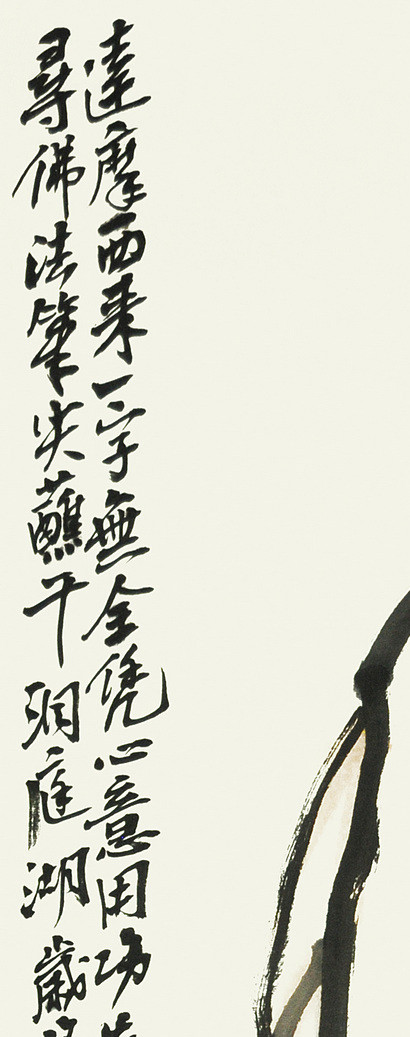 達摩西来一字無全凭心意用功
尋佛法筆尖蘸干洞庭湖歲